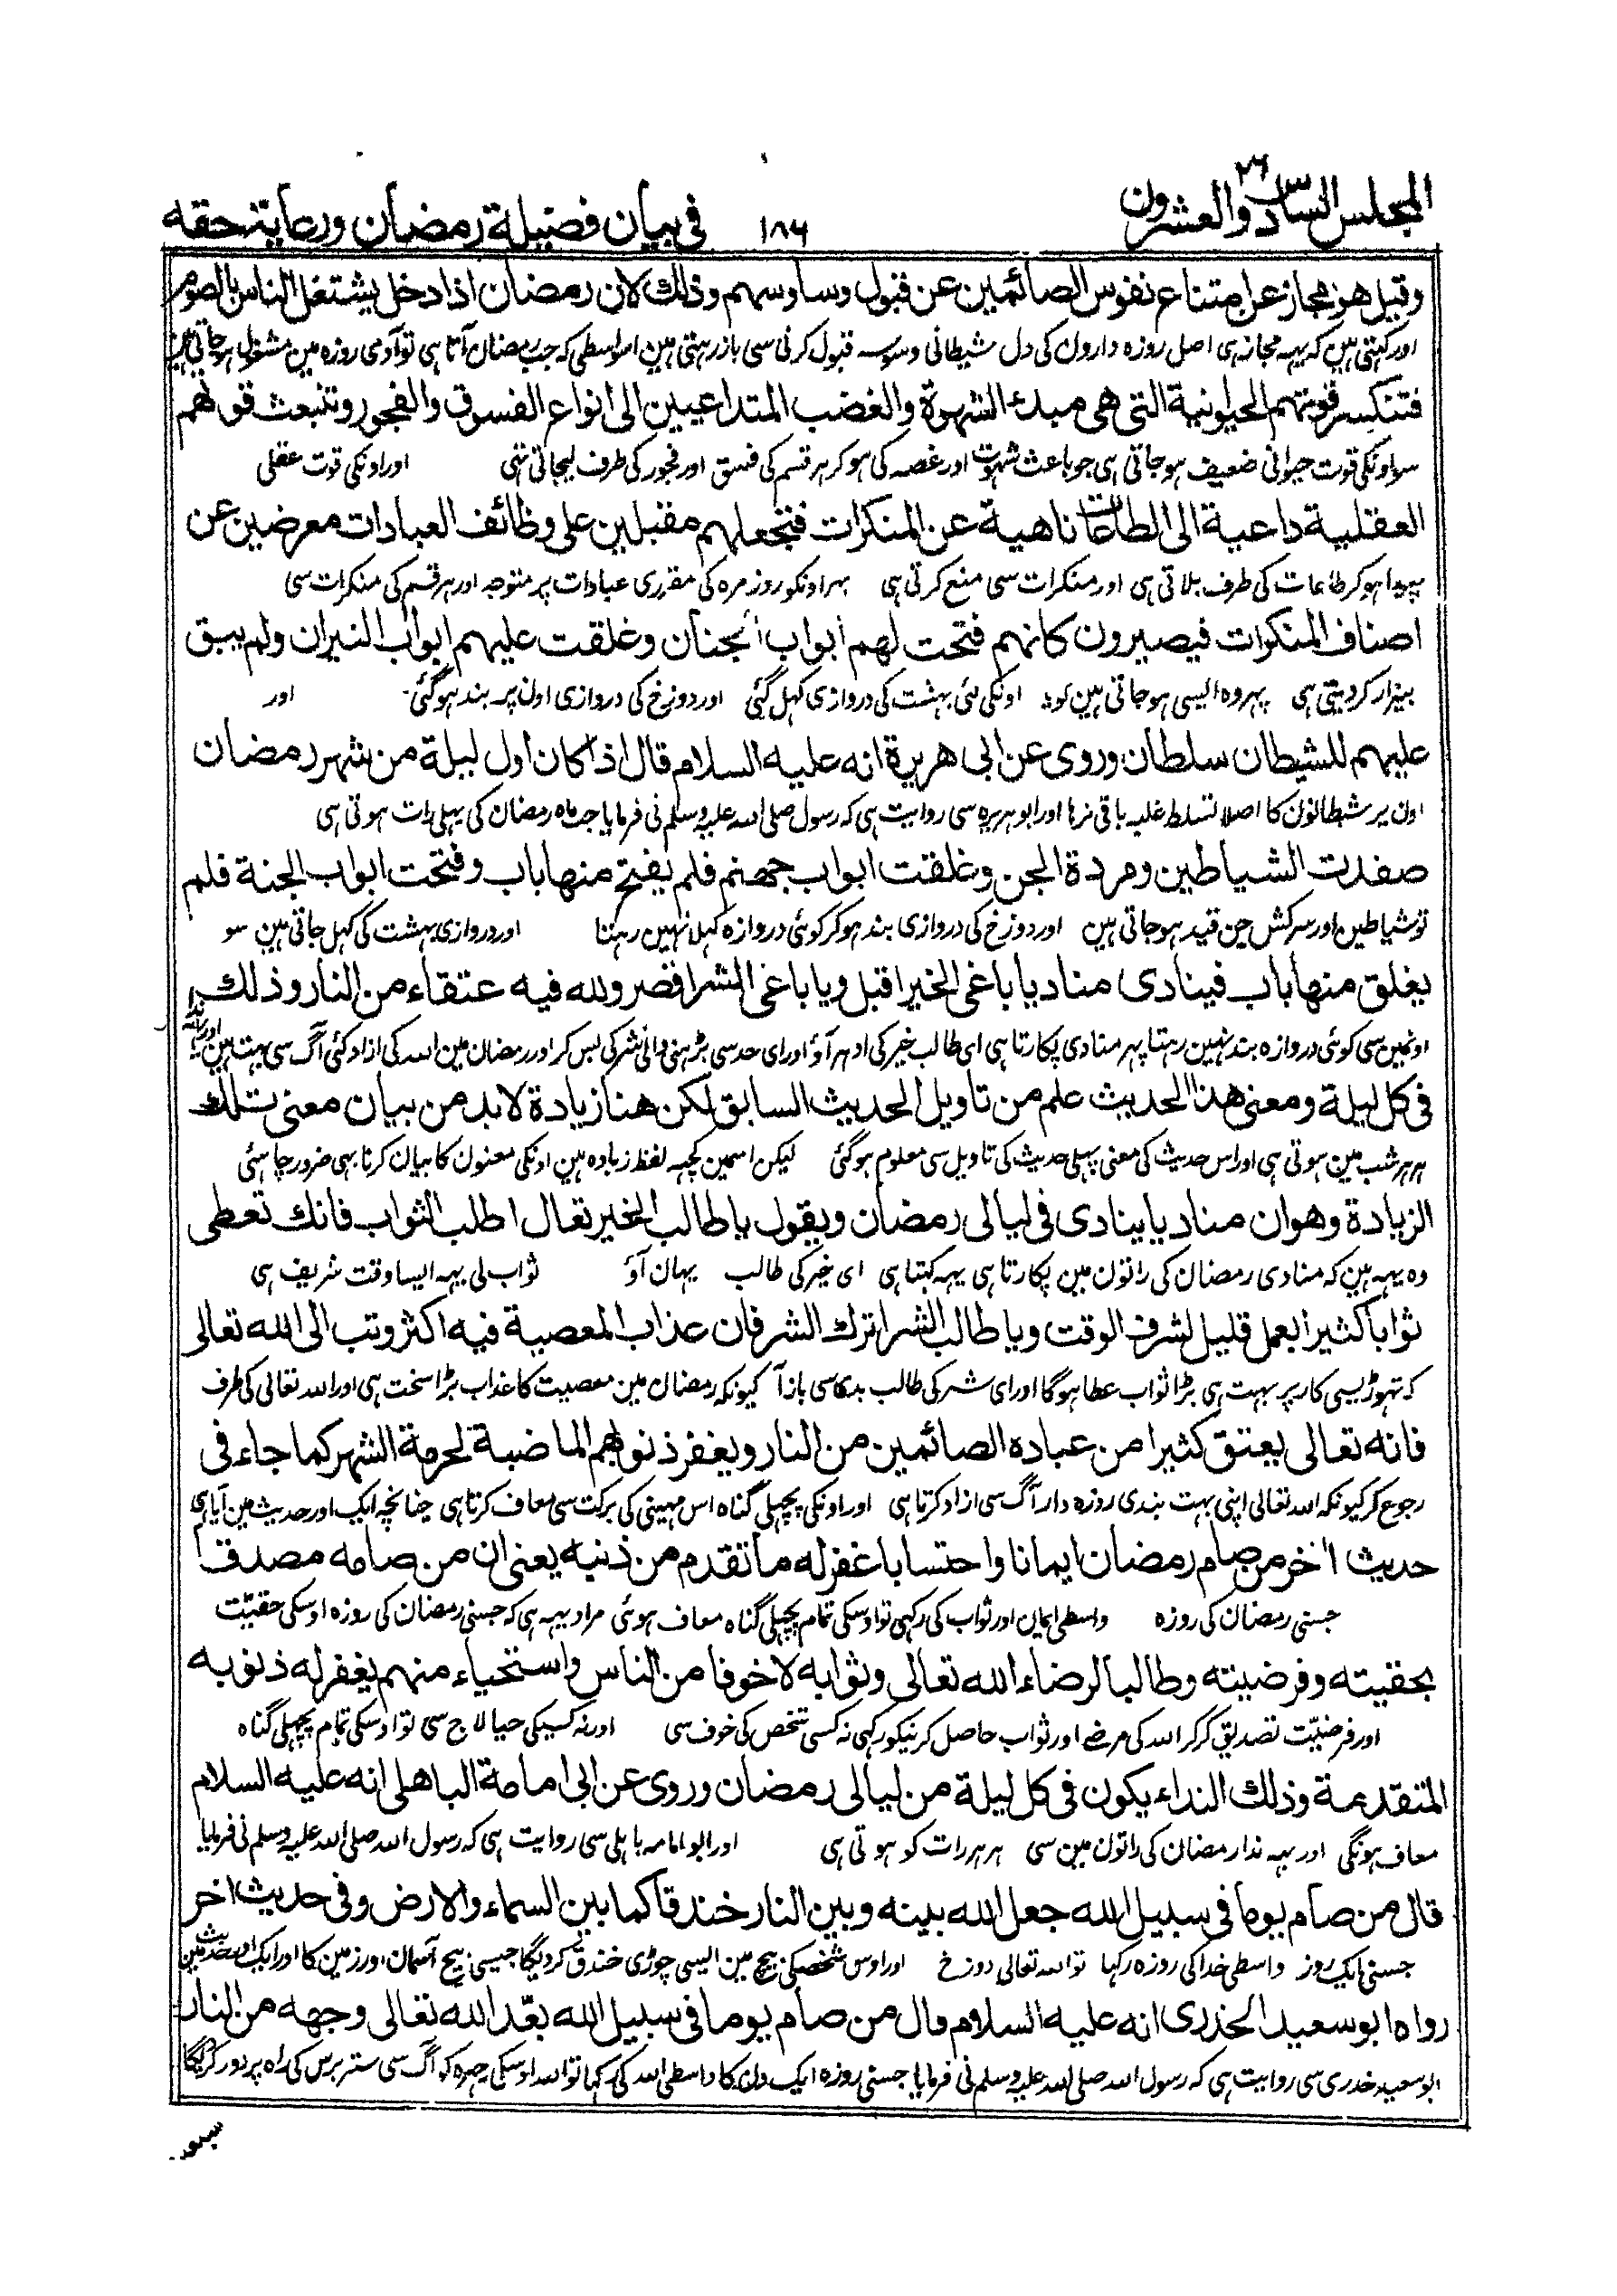 المجلس السادس والعشرون ٢٦
١٨٦
فی بیان فضیلة رمضان ورعایة حقه
وقیل هو مجاز عن امتناع نفوس الصائمین عن قبول وساوسهم وذلك لان رمضان اذا دخل یشتغل الناس بالصوم
اور کہتی ہین کہ یہہ مجاز ہی اصل روزہ دارون کی دل شیطانی وسوسہ قبول کرنی سی باز رہتی ہین اسواسطی کہ جب رمضان آتا ہی تو آدمی روزہ مین مشغول ہو جاتی ہین
فتنکسر قوتهم الحیوانیة التی هی مبدء الشهوة والغضب المتداعیین الی انواع الفسوق والفجور وتنبعث قوتهم
سو اونکی قوت حیوانی ضعیف ہو جاتی ہی جو باعث شہوت اور غصہ کی ہو کر ہر قسم کی فسق اور فجور کی طرف لیجاتی تہی اور اونکی قوت عقلی
العقلیة داعیة الی الطاعات ناهیة عن المنکرات فتجعلهم مقبلین علی وظائف العبادات معرضین عن
پیدا ہو کر طاعات کی طرف بلاتی ہی اور منکرات سی منع کرتی ہی پہر اونکو روز مرہ کی مقرری عبادات پر متوجہ اور ہر قسم کی منکرات سی
اصناف المنکرات فیصیرون کانهم فتحت لهم ابواب الجنان وغلقت علیهم ابواب النیران ولم یبق
بیزار کر دیتی ہی پہر وہ ایسی ہو جاتی ہین گویا اونکی لئی بہشت کی دروازی کہل گئی اور دوزخ کی دروازی اون پر بند ہو گئی اور
علیهم للشیطان سلطان وروی عن ابی هریرة انه علیه السلام قال اذا کان اول لیلة من شهر رمضان
اون پر شیطانون کا اصلا تسلط غلبہ باقی نرہا اور ابو ہریرہ سی روایت ہی کہ رسول صلی اللہ علیہ وسلم نی فرمایا جب ماہ رمضان کی پہلی رات ہوتی ہی
صفدت الشیاطین ومردة الجن وغلقت ابواب جهنم فلم یفتح منها باب وفتحت ابواب الجنة فلم
تو شیاطین اور سرکش جن قید ہو جاتی ہین اور دوزخ کی دروازی بند ہو کر کوئی دروازہ کہلا نہین رہتا اور دروازی بہشت کی کہل جاتی ہین سو
یغلق منها باب فینادی مناد یا باغی الخیر اقبل ویا باغی الشر اقصر ولله فیه عتقاء من النار وذلك
اونمین سی کوئی دروازہ بند نہین رہتا پہر منادی پکارتا ہی ای طالب خیر کی ادہر آؤ اور ای حد سی بڑہنی والی شر کی بس کر اور رمضان مین اللہ کی ازاد کئی آگ سی بہت ہین
فی کل لیلة ومعنی هذا الحدیث علم من تاویل الحدیث السابق لکن هنا زیادة لابد من بیان معنی تلك
ہر ہر شب مین ہوتی ہی اور اس حدیث کی معنی پہلی حدیث کی تاویل سی معلوم ہو گئی لیکن اسمین کچہہ لفظ زیادہ ہین اونکی معنون کا بیان کرنا بہی ضرور چاہئی
الزیادة وهو ان منادیا ینادی فی لیالی رمضان ویقول یا طالب الخیر تعال اطلب الثواب فانك تعطی
وہ یہہ ہین کہ منادی رمضان کی راتون مین پکارتا ہی یہہ کہتا ہی ای خیر کی طالب یہان آؤ ثواب لی یہہ ایسا وقت شریف ہی
ثوابا کثیرا بعمل قلیل لشرف الوقت ویا طالب الشر اترك الشر فان عذاب المعصیة فیه اکثر وتب الی الله تعالی
کہ تہوڑیسی کار پر بہت ہی بڑا ثواب عطا ہوگا اور ای شر کی طالب بدی سی باز آ کیونکہ رمضان مین معصیت کا عذاب بڑا سخت ہی اور اللہ تعالی کی طرف
فانه تعالی یعتق کثیرا من عباده الصائمین من النار ویغفر ذنوبهم الماضیة لحرمة الشهر کما جاء فی
رجوع کر کیونکہ اللہ تعالی اپنی بہت بندی روزہ دار آگ سی ازاد کرتا ہی اور اونکی پچہلی گناہ اس مہینی کی برکت سی معاف کرتا ہی چنانچہ ایک اور حدیث مین آیا ہی
حدیث اخر من صام رمضان ایمانا واحتسابا غفر له ما تقدم من ذنبه یعنی ان من صامه مصدقا
جسنی رمضان کی روزہ واسطی ایمان اور ثواب کی رکہی تو اوسکی تمام پچہلی گناہ معاف ہوئی مراد یہہ ہی کہ جسنی رمضان کی روزہ اوسکی حقیّت
بحقیته وفرضیته وطالبا لرضاء الله تعالی وثوابه لا خوفا من الناس واستحیاء منهم یغفر له ذنوبه
اور فرضیّت تصدیق کر کر اللہ کی مرضی اور ثواب حاصل کرنیکو رکہی نہ کسی شخص کی خوف سی اور نہ کسیکی حیا لاج سی تو اوسکی تمام پچہلی گناہ
المتقدمة وذلك النداء یکون فی کل لیلة من لیالی رمضان وروی عن ابی امامة الباهلی انه علیه السلام
معاف ہونگی اور یہہ ندا رمضان کی راتون مین سی ہر ہر رات کو ہوتی ہی اور ابو امامہ باہلی سی روایت ہی کہ رسول اللہ صلی اللہ علیہ وسلم نی فرمایا
قال من صام یوما فی سبیل الله جعل الله بینه وبین النار خندقا کما بین السماء والارض وفی حدیث اخر
جسنی ایک روز واسطی خدا کی روزہ رکہا تو اللہ تعالی دوزخ اور اوس شخصکی بیچ مین ایسی چوڑی خندق کر دیگا جیسی بیچ آسمان اور زمین کا اور ایک اور حدیث مین
رواه ابو سعید الخدری انه علیه السلام قال من صام یوما فی سبیل الله بعّد الله تعالی وجهه من النار
ابو سعید خدری سی روایت ہی کہ رسول اللہ صلی اللہ علیہ وسلم نی فرمایا جسنی روزہ ایک دن کا واسطی اللہ کی رکہا تو اللہ اوسکی چہرہ کو آگ سی ستر برس کی راہ پر دور کریگا